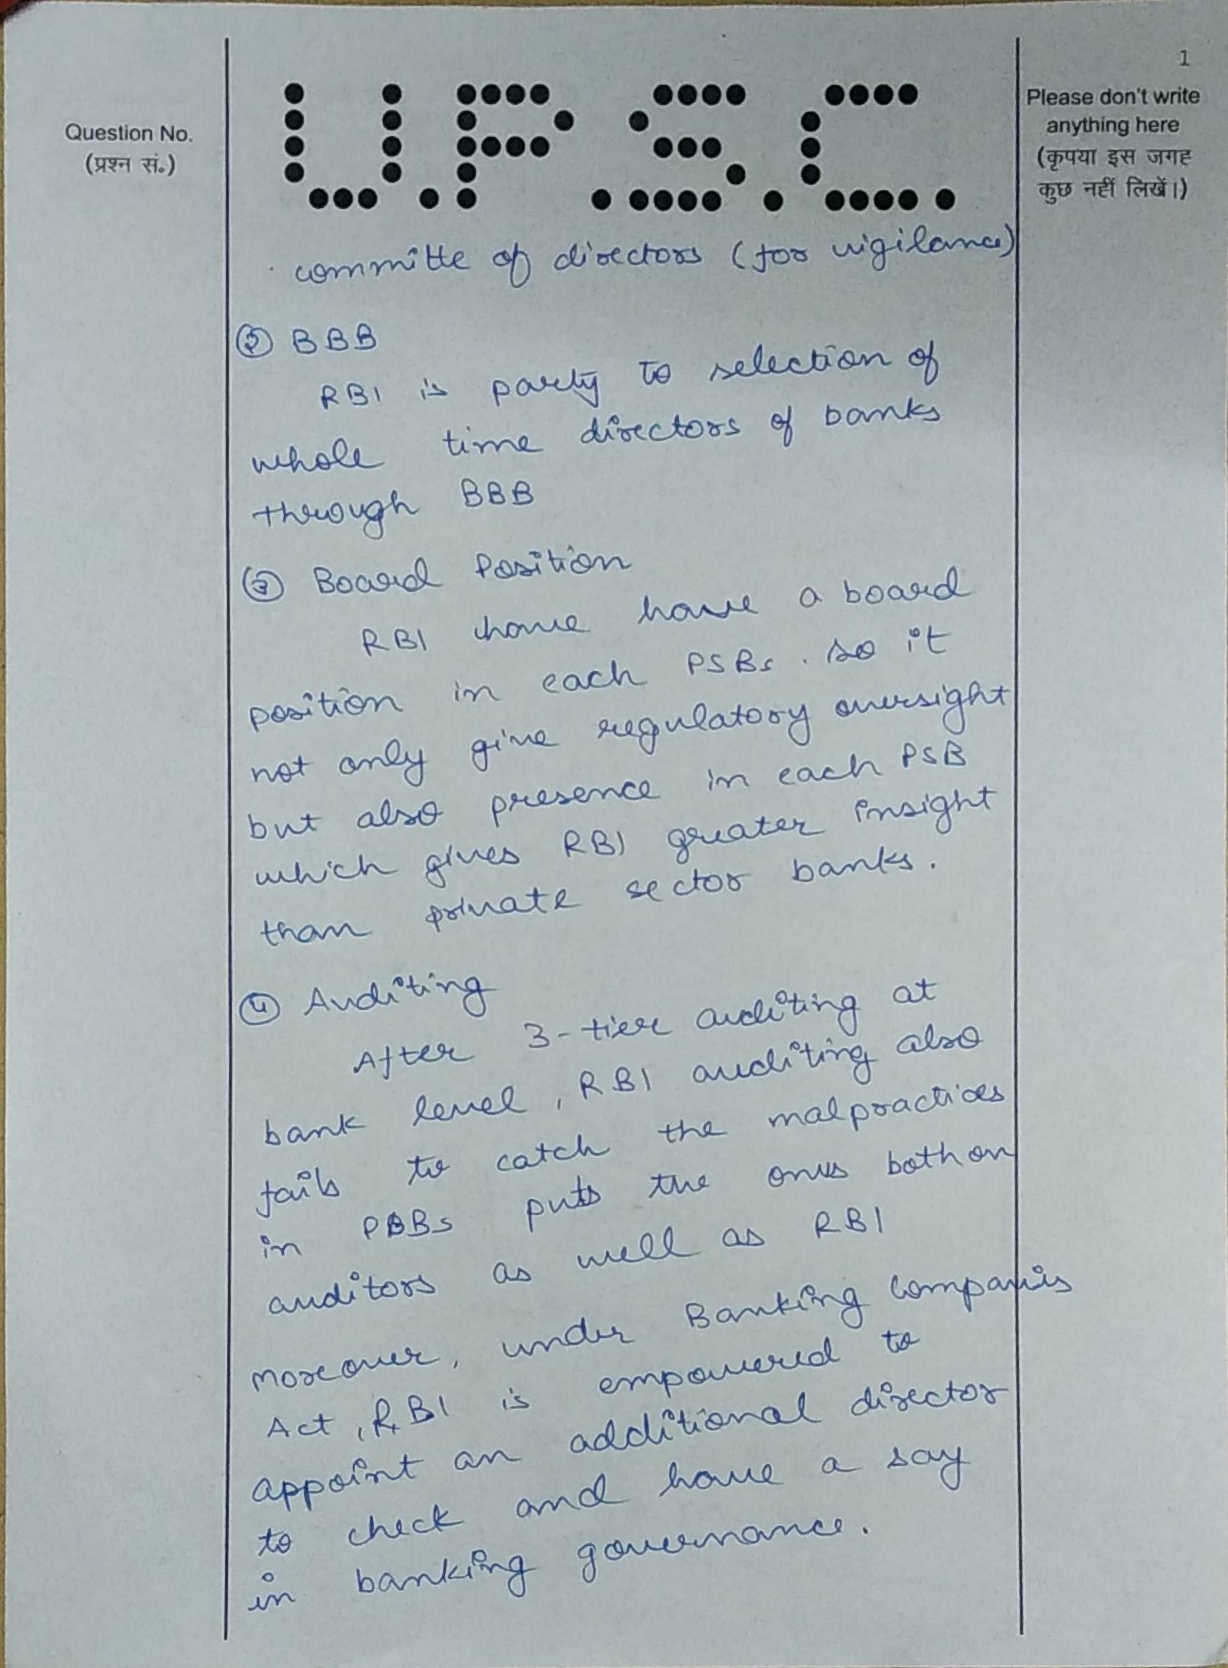 1
Question No.
(प्रश्न सं.)
U.P.S.C.
Please don't write
anything here
(कृपया इस जगह
कुछ नहीं लिखें।)
committe of directors (for vigilance)
② BBB
RBI is party to selection of
whole time directors of banks
through BBB
③ Board Position
RBI have have a board
position in each PSBs. so it
not only give regulatory oversight
but also presence in each PSB
which gives RBI greater insight
than private sector banks.
④ Auditing
After 3-tier auditing at
bank level, RBI auditing also
fails to catch the malpractices
in PBBs puts the onus both on
auditors as well as RBI
Moreover, under Banking Companies
Act, RBI is empowered to
appoint an additional director
to check and have a say
in banking governance.